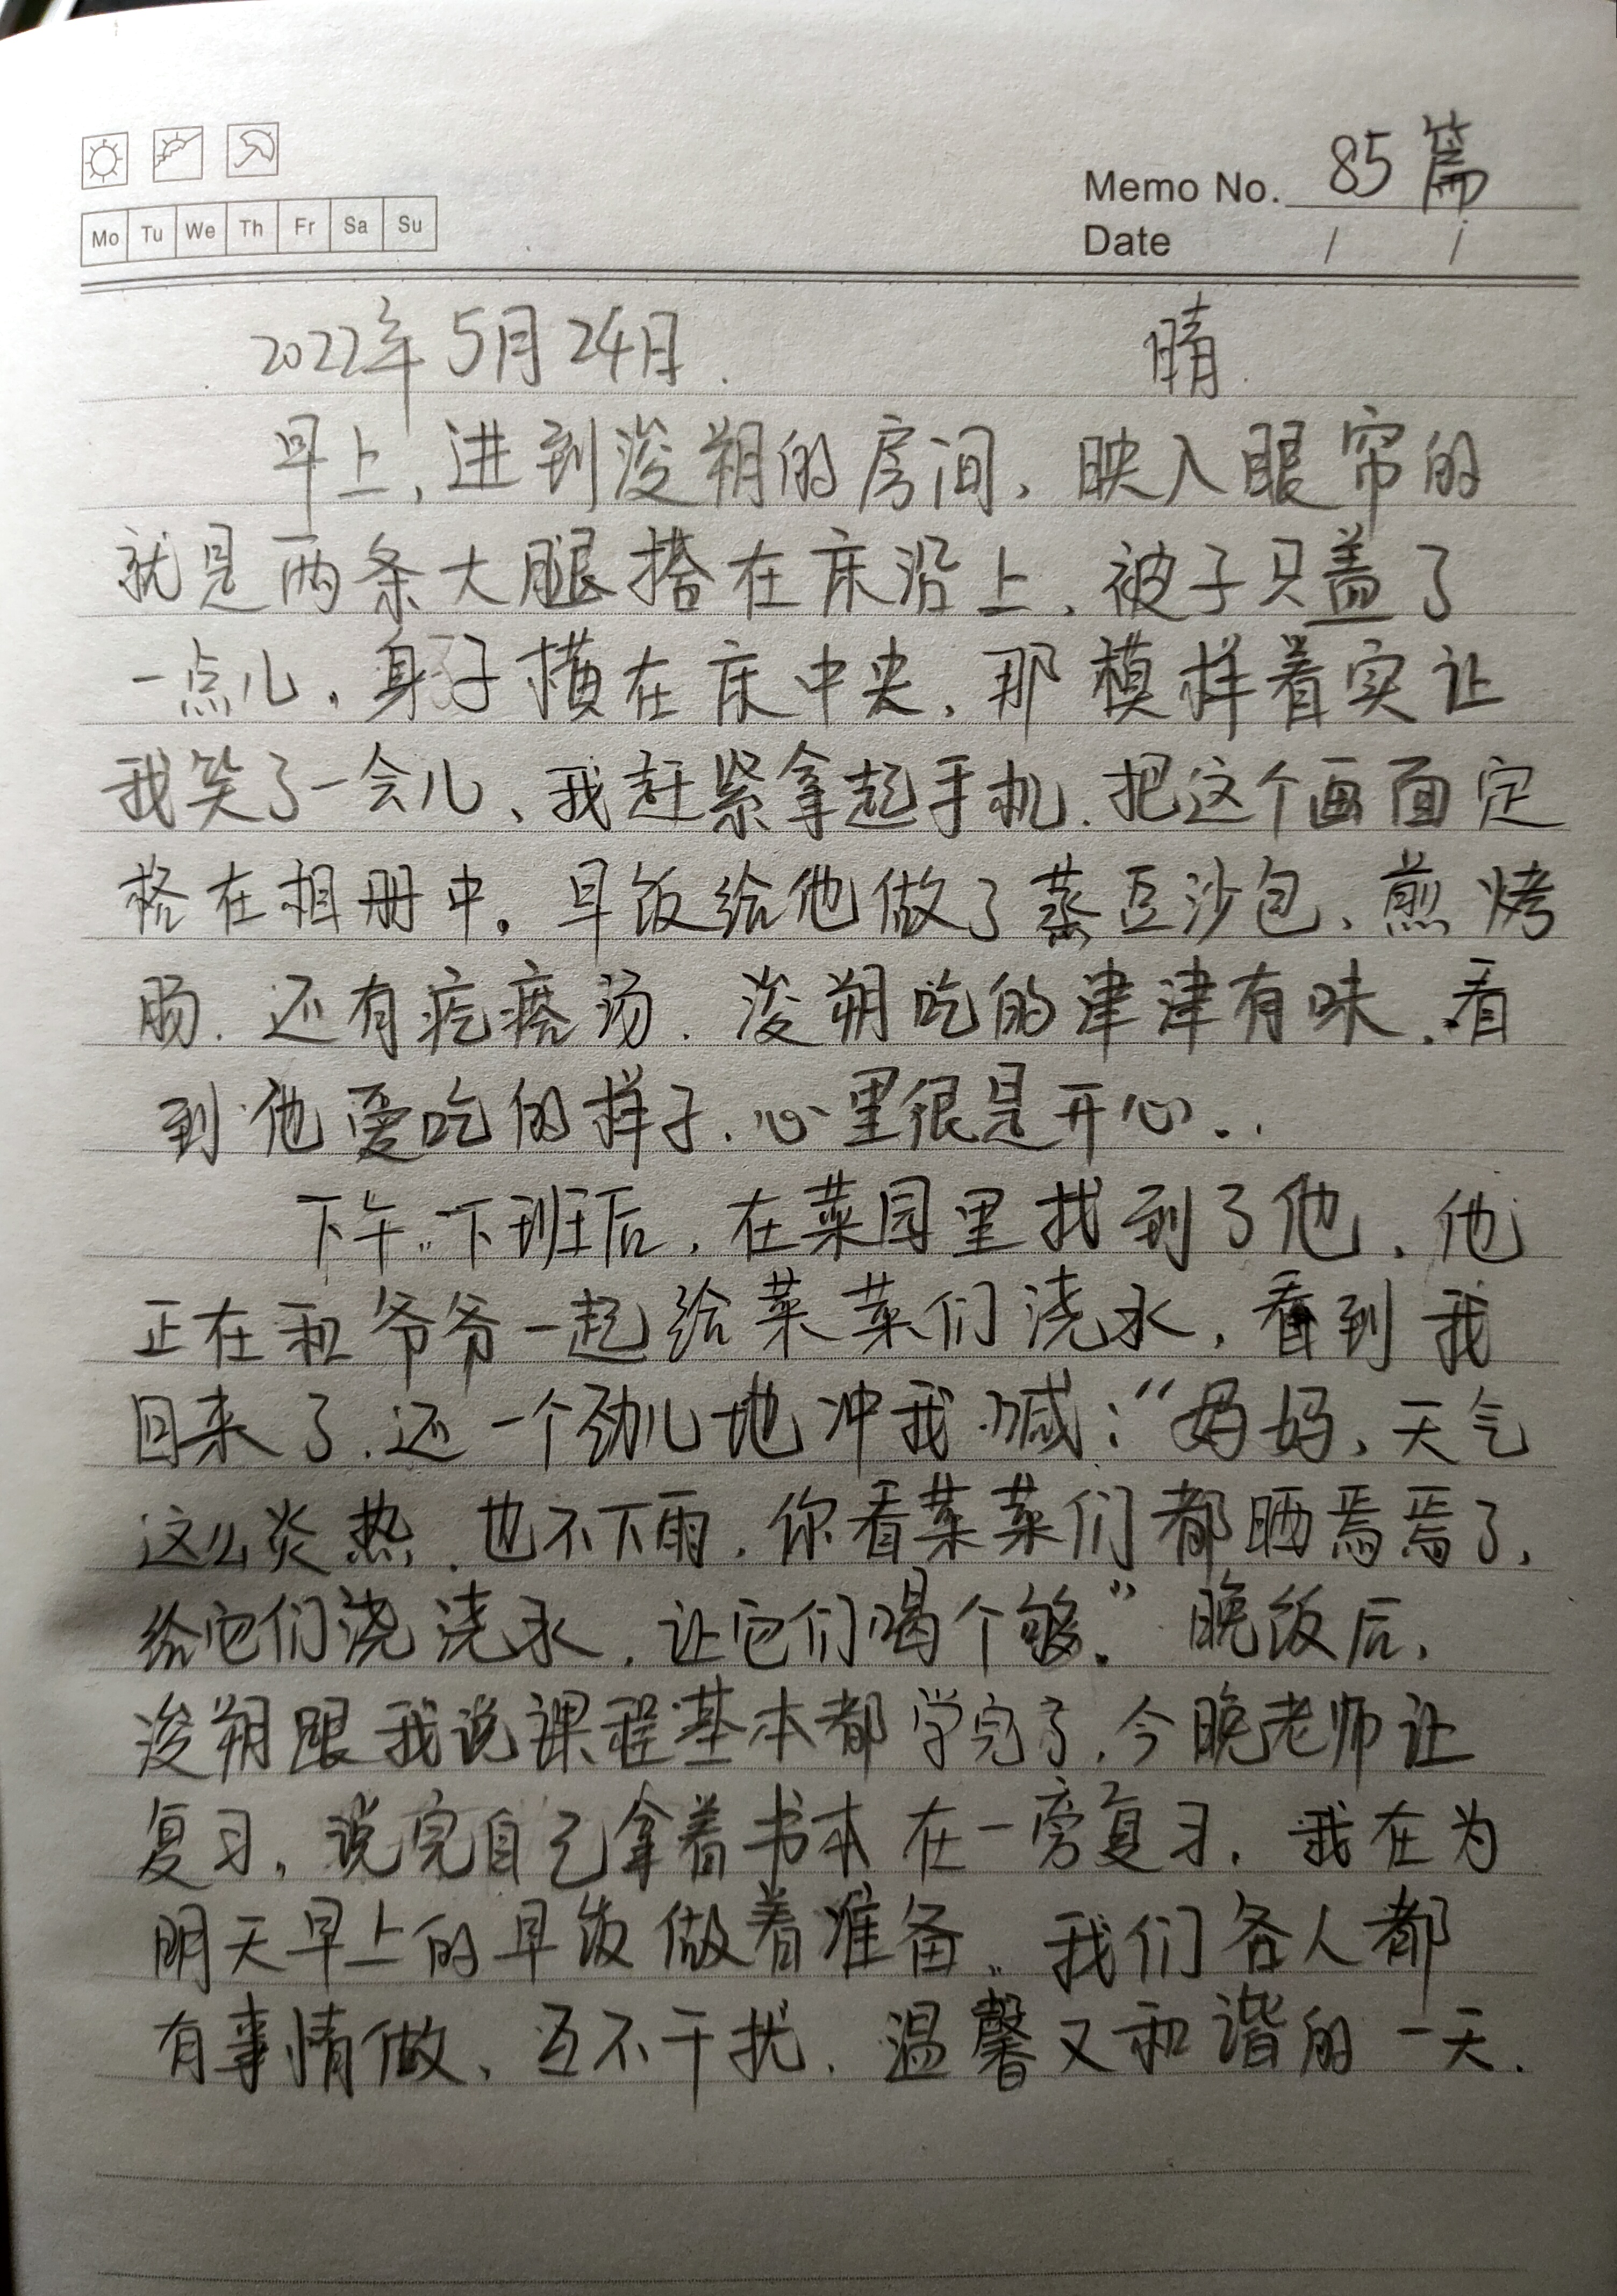 Memo No. 85篇
Mo Tu We Th Fr Sa Su
Date / /
2022年5月24日. 晴.
早上,进到浚朔的房间,映入眼帘的
就是两条大腿搭在床沿上,被子只盖了
一点儿,身子横在床中央,那模样着实让
我笑了一会儿、我赶紧拿起手机.把这个画面定
格在相册中。早饭给他做了蒸豆沙包、煎烤
肠.还有疙瘩汤.浚朔吃的津津有味.看
到他爱吃的样子.心里很是开心..
下午..下班后,在菜园里找到了他,他
正在和爷爷一起给菜菜们浇水,看到我
回来了.还一个劲儿地冲我喊:“妈妈、天气
这么炎热.也不下雨.你看菜菜们都晒焉焉了,
给它们浇浇水.让它们喝个够。”晚饭后,
浚朔跟我说课程基本都学完了.今晚老师让
复习,说完自己拿着书本在一旁复习.我在为
明天早上的早饭做着准备..我们各人都
有事情做、互不干扰.温馨又和谐的一天.